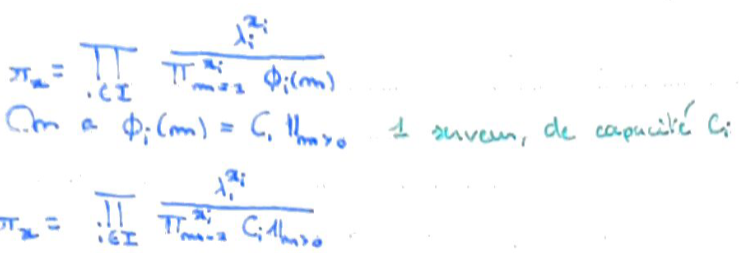 π_x = ∏_{i∈I} λ_i^{x_i} / ∏_{m=1}^{x_i} Φ_i(m)
On a Φ_i(m) = C_i 𝟙_{m>0} 1 serveur, de capacité C_i
π_x = ∏_{i∈I} λ_i^{x_i} / ∏_{m=1}^{x_i} C_i 𝟙_{m>0}